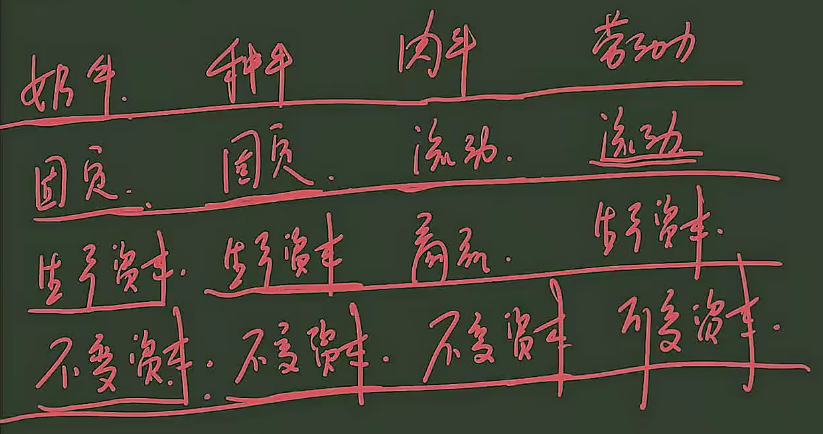 奶牛. 种牛 肉牛 劳动力
固资. 固资. 流动. 流动
生产资本. 生产资本 商品. 生产资本.
不变资本. 不变资本. 不变资本 可变资本.